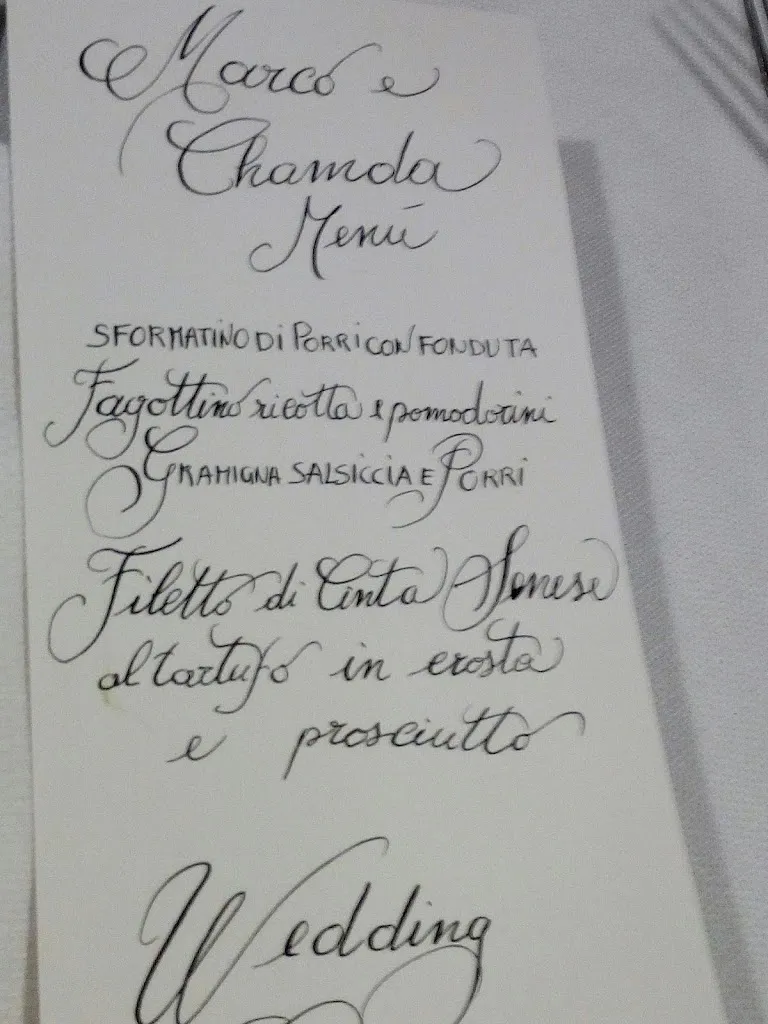 Marco e
Chamda
Menú
SFORMATINO DI PORRI CON FONDUTA
Fagottino ricotta e pomodorini
GRAMIGNA SALSICCIA E PORRI
Filetto di Cinta Senese
al tartufo in crosta
e prosciutto
Wedding